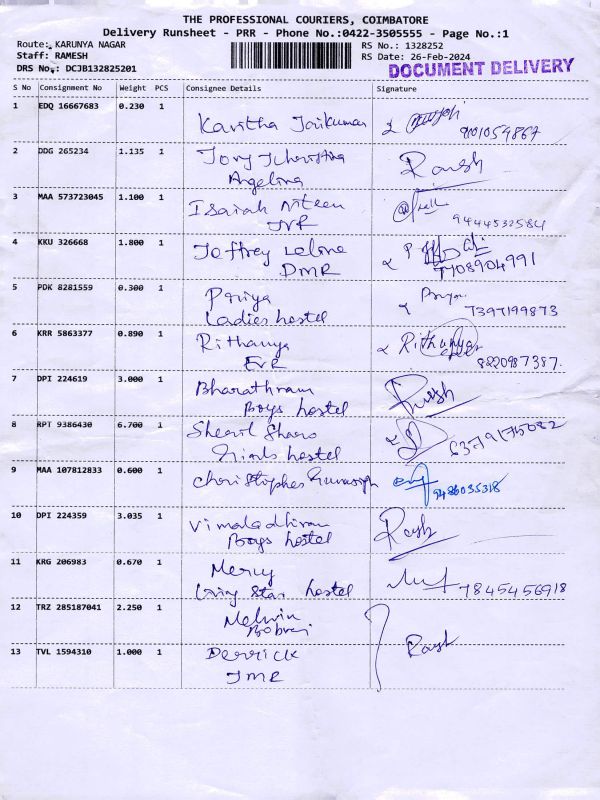 THE PROFESSIONAL COURIERS, COIMBATORE
Delivery Runsheet - PRR - Phone No.:0422-3505555 - Page No.:1
Route: KARUNYA NAGAR RS No.: 1328252
Staff: RAMESH RS Date: 26-Feb-2024
DRS No.: DCJB132825201 DOCUMENT DELIVERY
S No Consignment No Weight PCS Consignee Details Signature
1 EDQ 16667683 0.230 1
Kavitha Jaikumar
2 DDG 265234 1.135 1
Angelina
3 MAA 573723045 1.100 1
Isaiah
JVR
4 KKU 326668 1.800 1
Joffrey
DMR 7708904991
5 PDK 8281559 0.300 1
Priya
Ladies hostel 7397199873
6 KRR 5863377 0.890 1
Rithanya Rithanya
EVR 8220987387.
7 DPI 224619 3.000 1
Bharathram
Boys hostel
8 RPT 9386430 6.700 1
hostel
9 MAA 107812833 0.600 1
Christopher 9486035318
10 DPI 224359 3.035 1
Vimaladhiran
Boys hostel
11 KRG 206983 0.670 1
Mercy
hostel 7845456918
12 TRZ 285187041 2.250 1
Melvin
13 TVL 1594310 1.000 1
Derrick
JMR